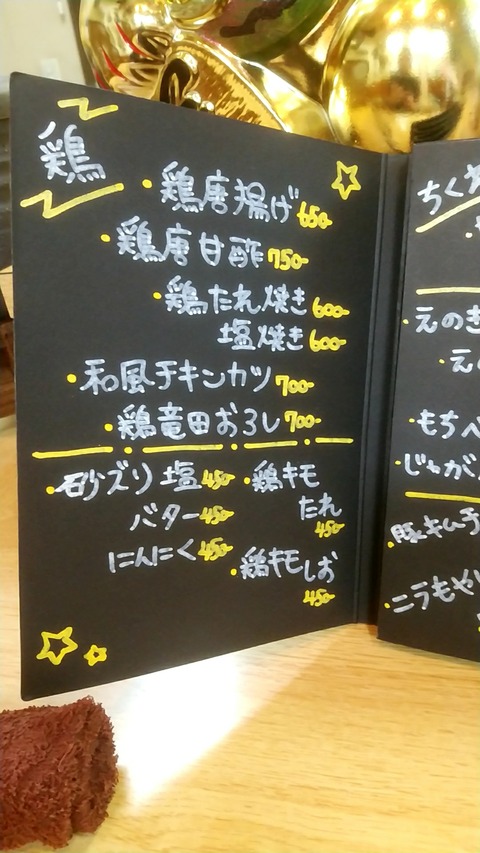 鶏
・鶏唐揚げ 650-
・鶏唐甘酢 750-
・鶏たれ焼き 600-
塩焼き 600-
・和風チキンカツ 700-
・鶏竜田おろし 700-
・砂ズリ塩 450-
バター 450-
にんにく 450-
・鶏キモ
たれ
450-
・鶏キモしお
450-
ちく
・えのき
・え
・もちべ
・じゃが
・豚キムチ
・ニラもや